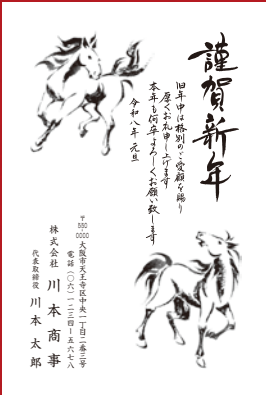 謹賀新年
旧年中は格別のご愛顧を賜り
厚くお礼申し上げます
本年も何卒よろしくお願い致します
令和八年 元旦
〒550-0000
大阪市天王寺区中央一丁目二番三号
電話(〇六)一二三四-五六七八
株式会社 川本商事
代表取締役 川本太郎